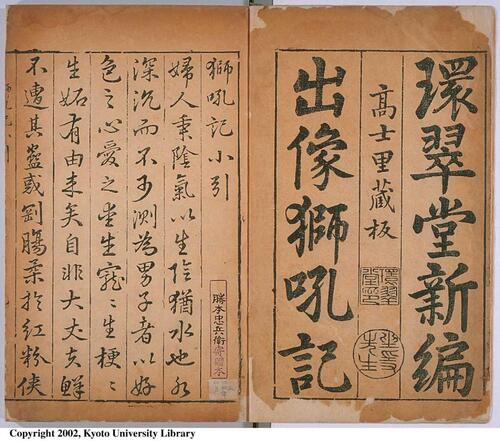 環翠堂新編
高士里藏板
環翠堂印
坐隱先生
出像獅吼記
獅吼記小引
婦人秉陰氣以生陰猶水也水
深沉而不可測為男子者以好
色之心愛之愛生寵〻生梗〻
生妬有由來矣自非大丈夫鮮
不遭其蠱惑剛腸柔於紅粉俠
勝本忠兵衛寄贈本
Copyright 2002, Kyoto University Library